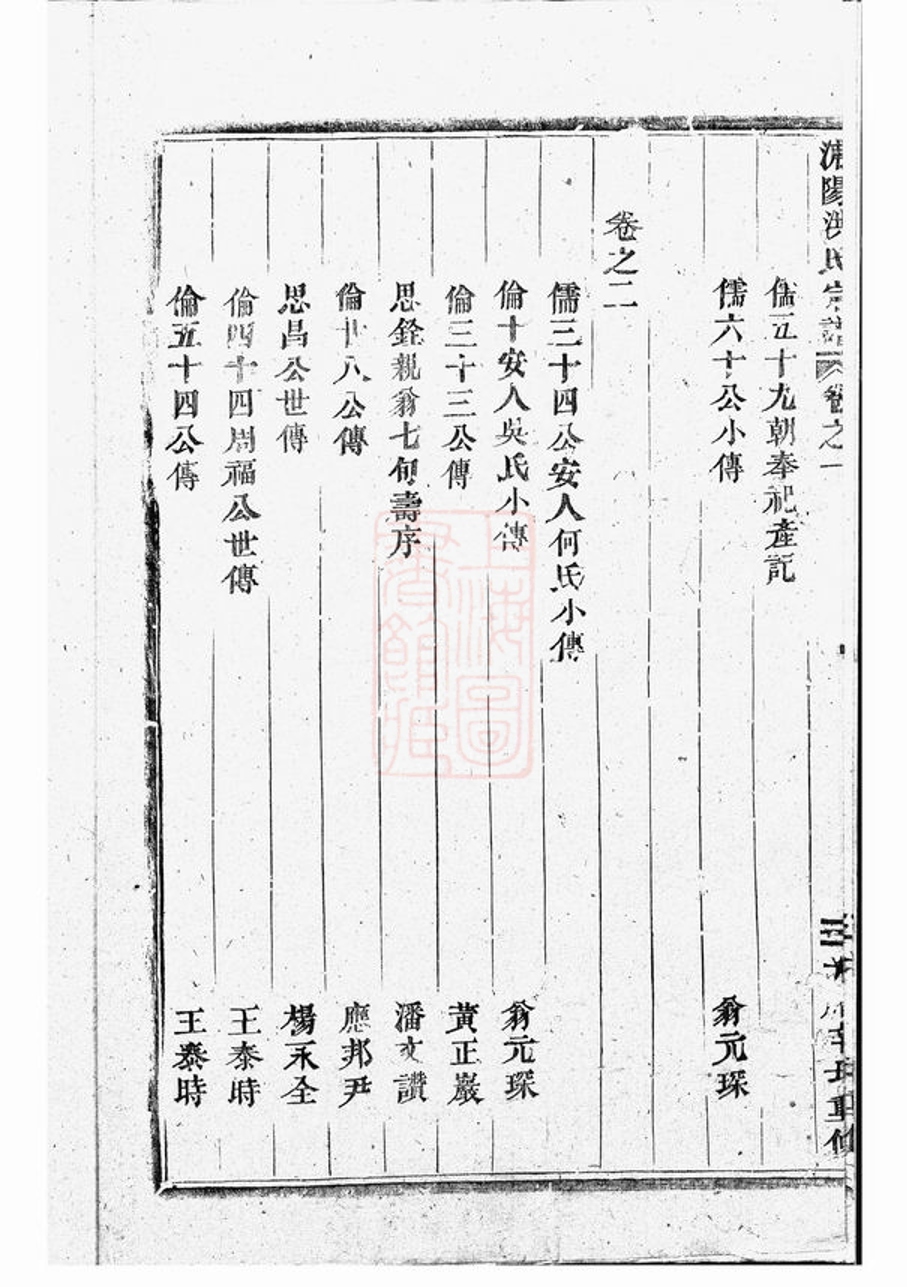 陽洪氏宗譜 卷之一
儒五十九朝奉祀產記
儒六十公小傳 翁元琛
卷之二
儒三十四公安人何氏小傳
倫十安人吳氏小傳 翁元琛
倫三十三公傳 黃正巖
思銓親翁七旬壽序 潘文讚
倫廿八公傳 應邦尹
思昌公世傳 楊永全
倫四十四周福公世傳 王泰時
倫五十四公傳 王泰時
上海圖
書館藏